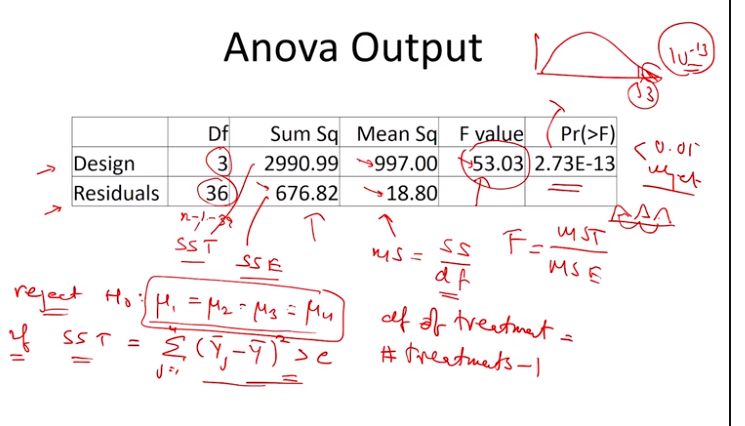 Anova Output
10^-13
53
Df Sum Sq Mean Sq F value Pr(>F)
Design 3 2990.99 997.00 53.03 2.73E-13
Residuals 36 676.82 18.80
< 0.01
reject
n-1-3
SST
SSE
MS = SS / df
F = MST / MSE
reject H0: μ1 = μ2 = μ3 = μ4
if SST = Σ (Ȳj - Ȳ)² > c
j=1
df of treatment =
# treatments - 1